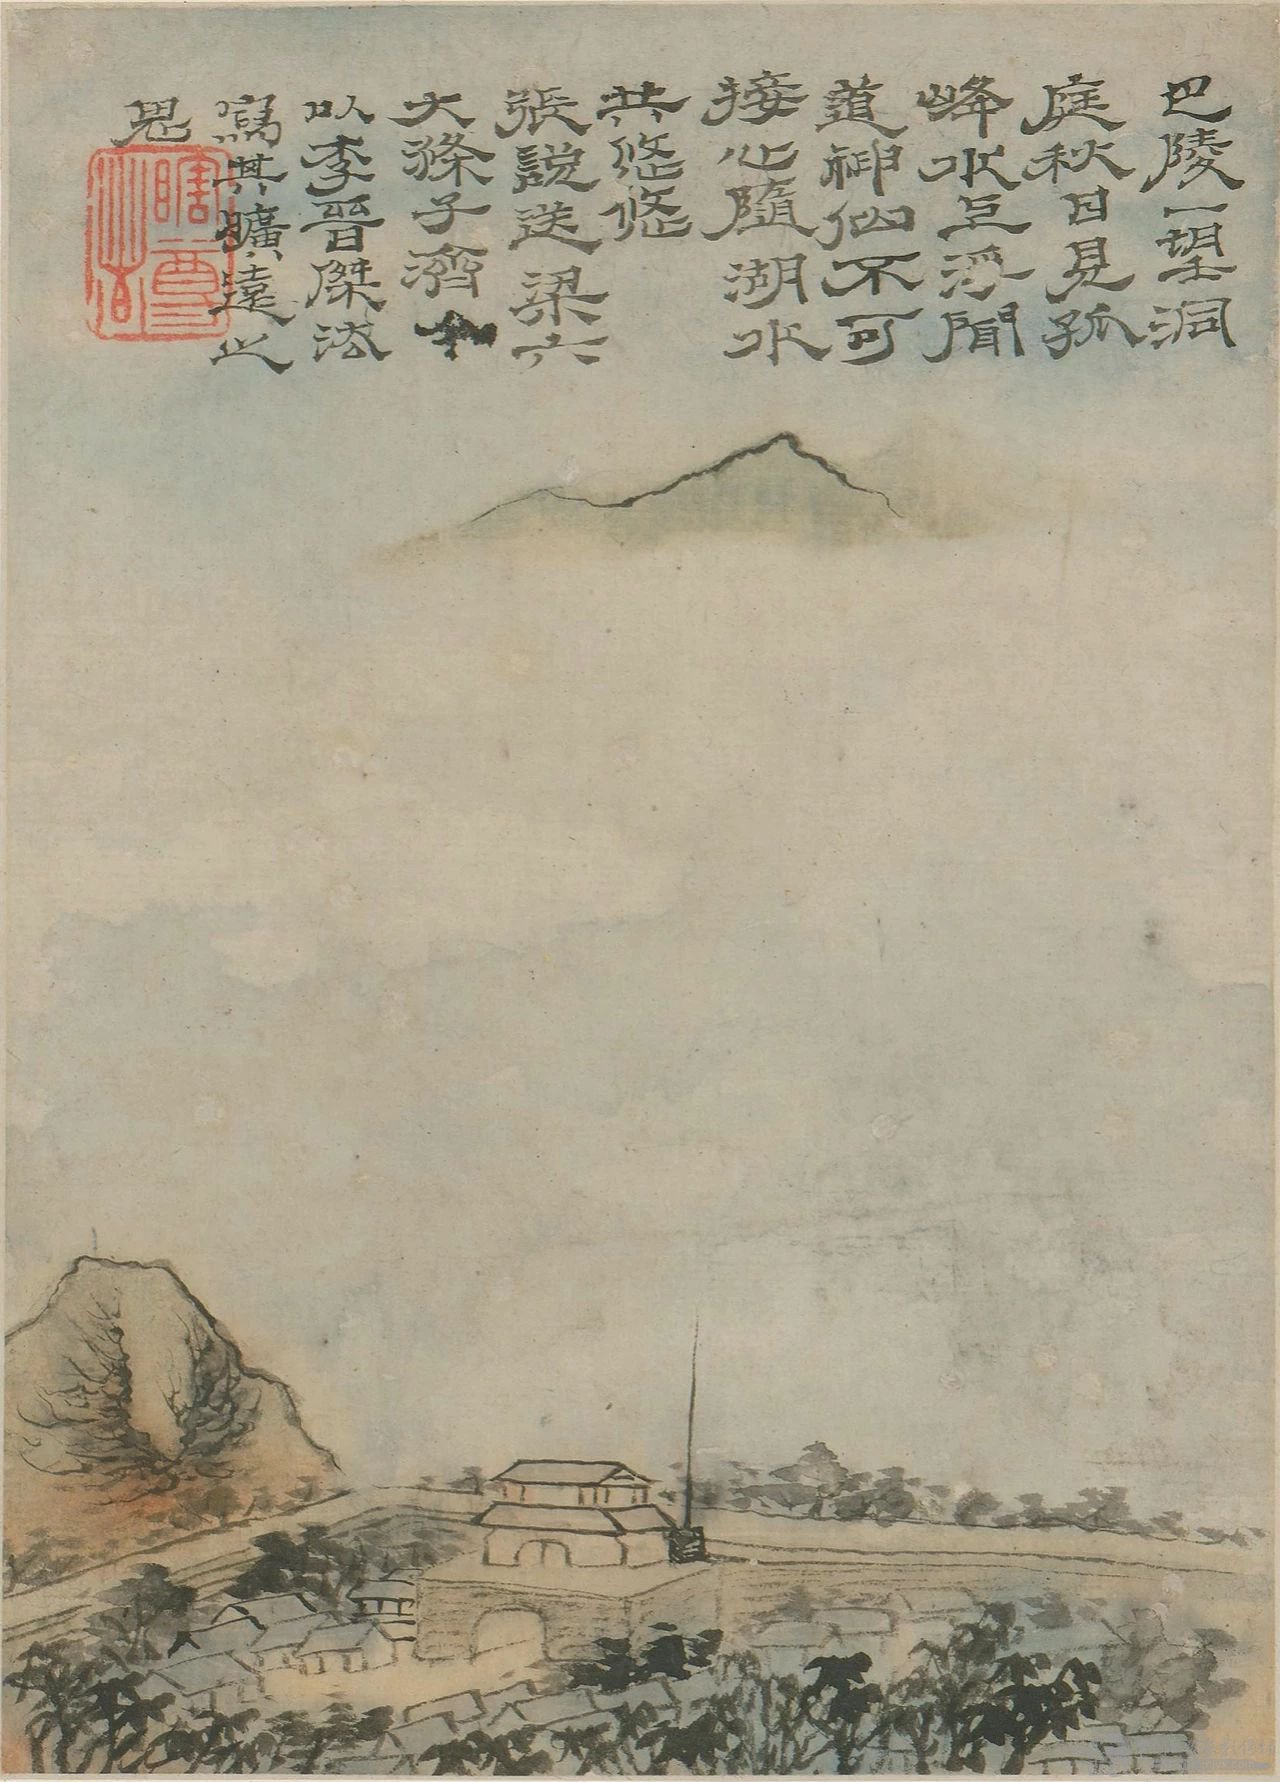 巴陵一望洞
庭秋日見孤
峰水上浮聞
道神仙不可
接心隨湖水
共悠悠
張說送梁六
大滌子濟
以李晉傑法
寫其曠遠之
思
瞎尊者